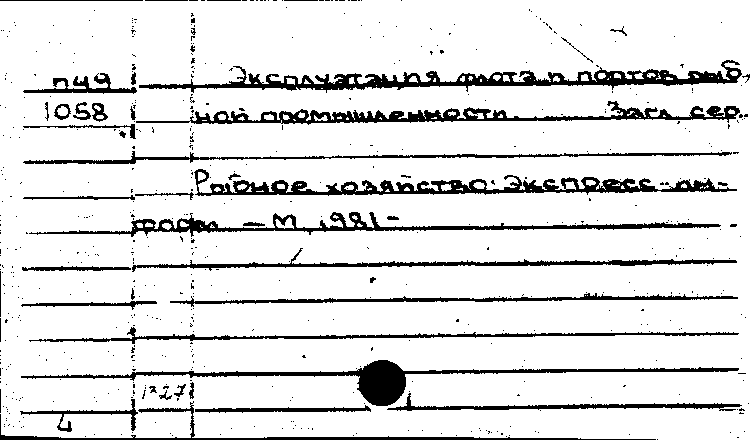 П49 Эксплуатация флота и портов рыб.
1058 ной промышленности. Загл. сер.
Рыбное хозяйство: Экспресс-ин-
форм. — М., 1981-
1327
4